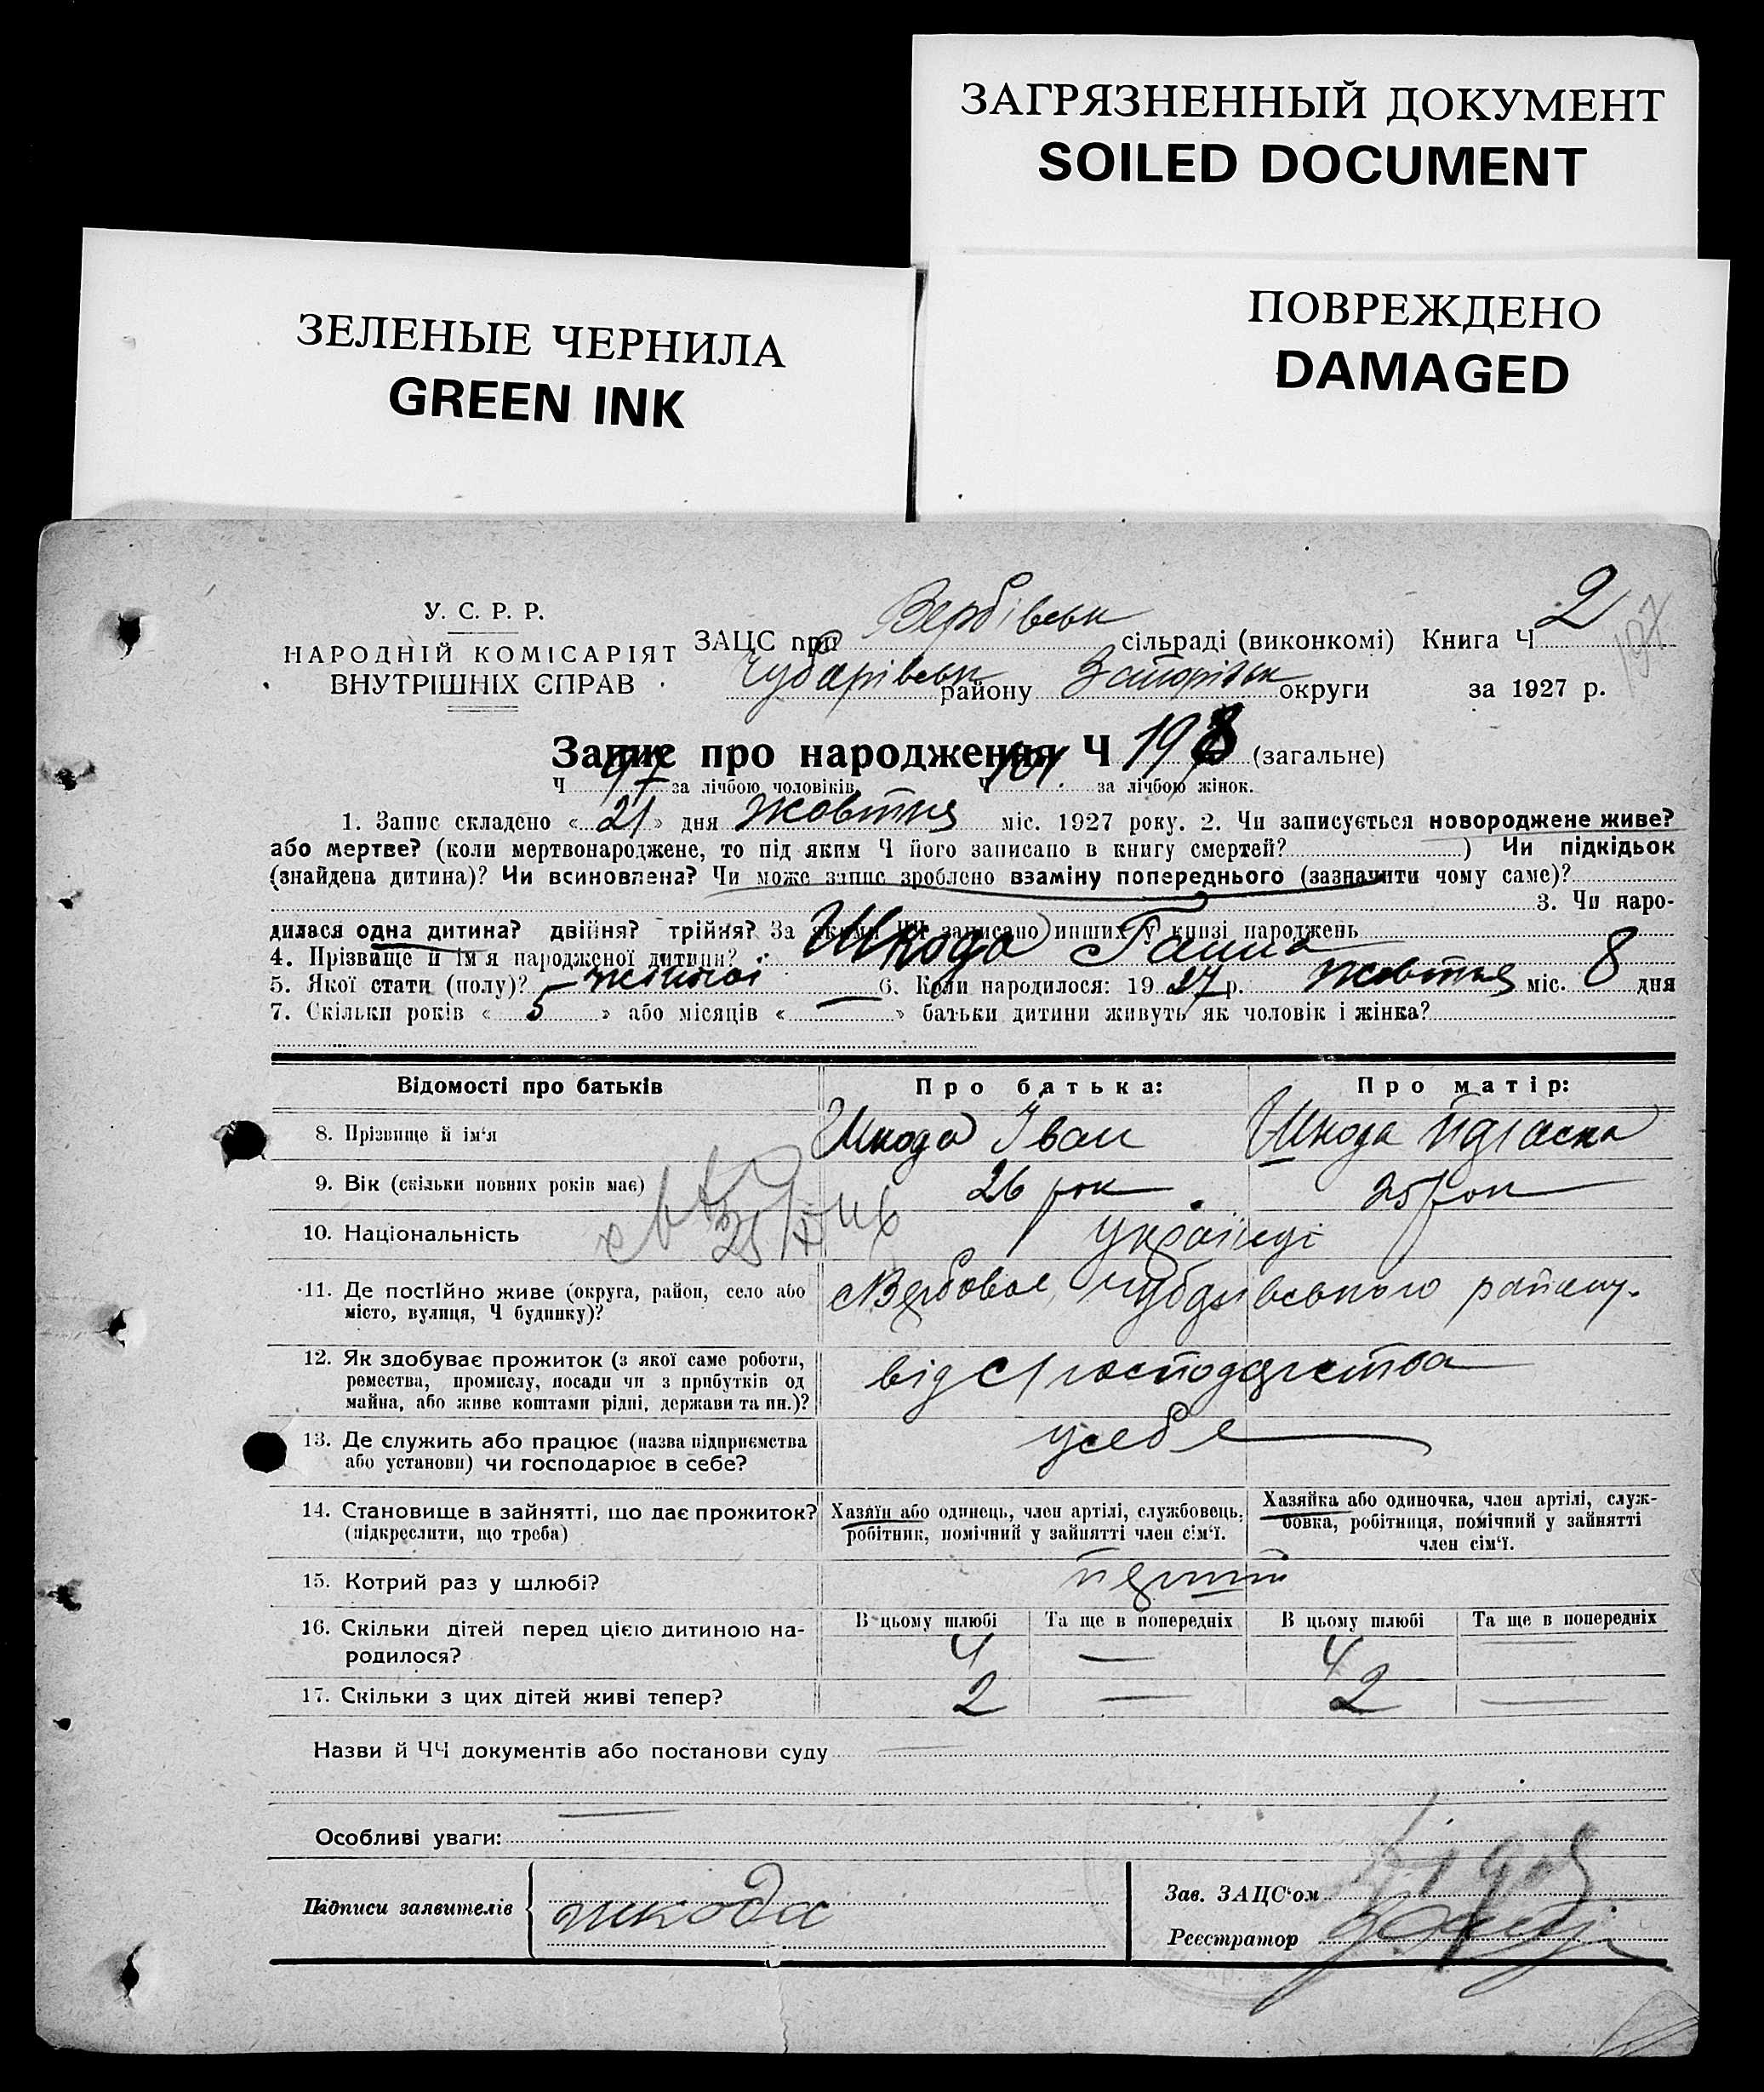 ЗАГРЯЗНЕННЫЙ ДОКУМЕНТ
SOILED DOCUMENT
ЗЕЛЕНЫЕ ЧЕРНИЛА
GREEN INK
ПОВРЕЖДЕНО
DAMAGED
У. С. Р. Р.
НАРОДНІЙ КОМІСАРІЯТ
ВНУТРІШНІХ СПРАВ
ЗАЦС при Вербівськ сільраді (виконкомі) Книга Ч 2
Чубарівськ району Запорізьк округи за 1927 р.
197
Запис про народження Ч 198 (загальне)
Ч 97 за лічбою чоловіків Ч 101 за лічбою жінок.
1. Запис складено « 21 » дня жовтня міс. 1927 року. 2. Чи записується новороджене живе?
або мертве? (коли мертвонароджене, то під яким Ч його записано в книгу смертей? ) Чи підкідьок
(знайдена дитина)? Чи всиновлена? Чи може запис зроблено взаміну попереднього (зазначити чому саме)?
3. Чи наро-
дилася одна дитина? двійня? трійня? За якими ЧЧ записано инших у книзі народжень
4. Прізвище й ім'я народженої дитини? Шкода Ганна
5. Якої стати (полу)? жіночої 6. Коли народилося: 19 27 р. жовтня міс. 8 дня
7. Скільки років « 5 » або місяців « — » батьки дитини живуть як чоловік і жінка?
Відомості про батьків Про батька: Про матір:
8. Прізвище й ім'я Шкода Іван Шкода
9. Вік (скільки повних років має) 26 рок 25 рок
10. Національність українці
11. Де постійно живе (округа, район, село або
місто, вулиця, Ч будинку)?
с Вербове Чубарівського району.
12. Як здобуває прожиток (з якої саме роботи,
ремества, промислу, посади чи з прибутків од
майна, або живе коштами рідні, держави та ин.)?
від с/господарства
13. Де служить або працює (назва підприємства
або установи) чи господарює в себе?
у себе
14. Становище в зайнятті, що дає прожиток?
(підкреслити, що треба)
Хазяїн або одинець, член артілі, службовець,
робітник, помічний у зайнятті член сім'ї.
Хазяйка або одиночка, член артілі, служ-
бовка, робітниця, помічний у зайнятті
член сім'ї.
15. Котрий раз у шлюбі? перший
В цьому шлюбі Та ще в попередніх В цьому шлюбі Та ще в попередніх
16. Скільки дітей перед цією дитиною на-
родилося?
4 — 4 —
17. Скільки з цих дітей живі тепер? 2 — 2 —
Назви й ЧЧ документів або постанови суду —
Особливі уваги:
Підписи заявителів шкода
Зав. ЗАЦС'ом
Реєстратор